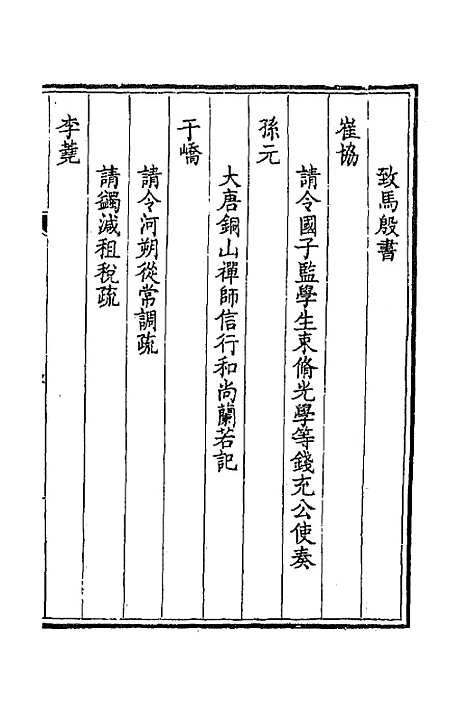 致馬殷書
崔協
請令國子監學生束脩光學等錢充公使奏
孫元
大唐銅山禪師信行和尚蘭若記
于嶠
請令河朔從常調疏
請蠲減租稅疏
李蕘